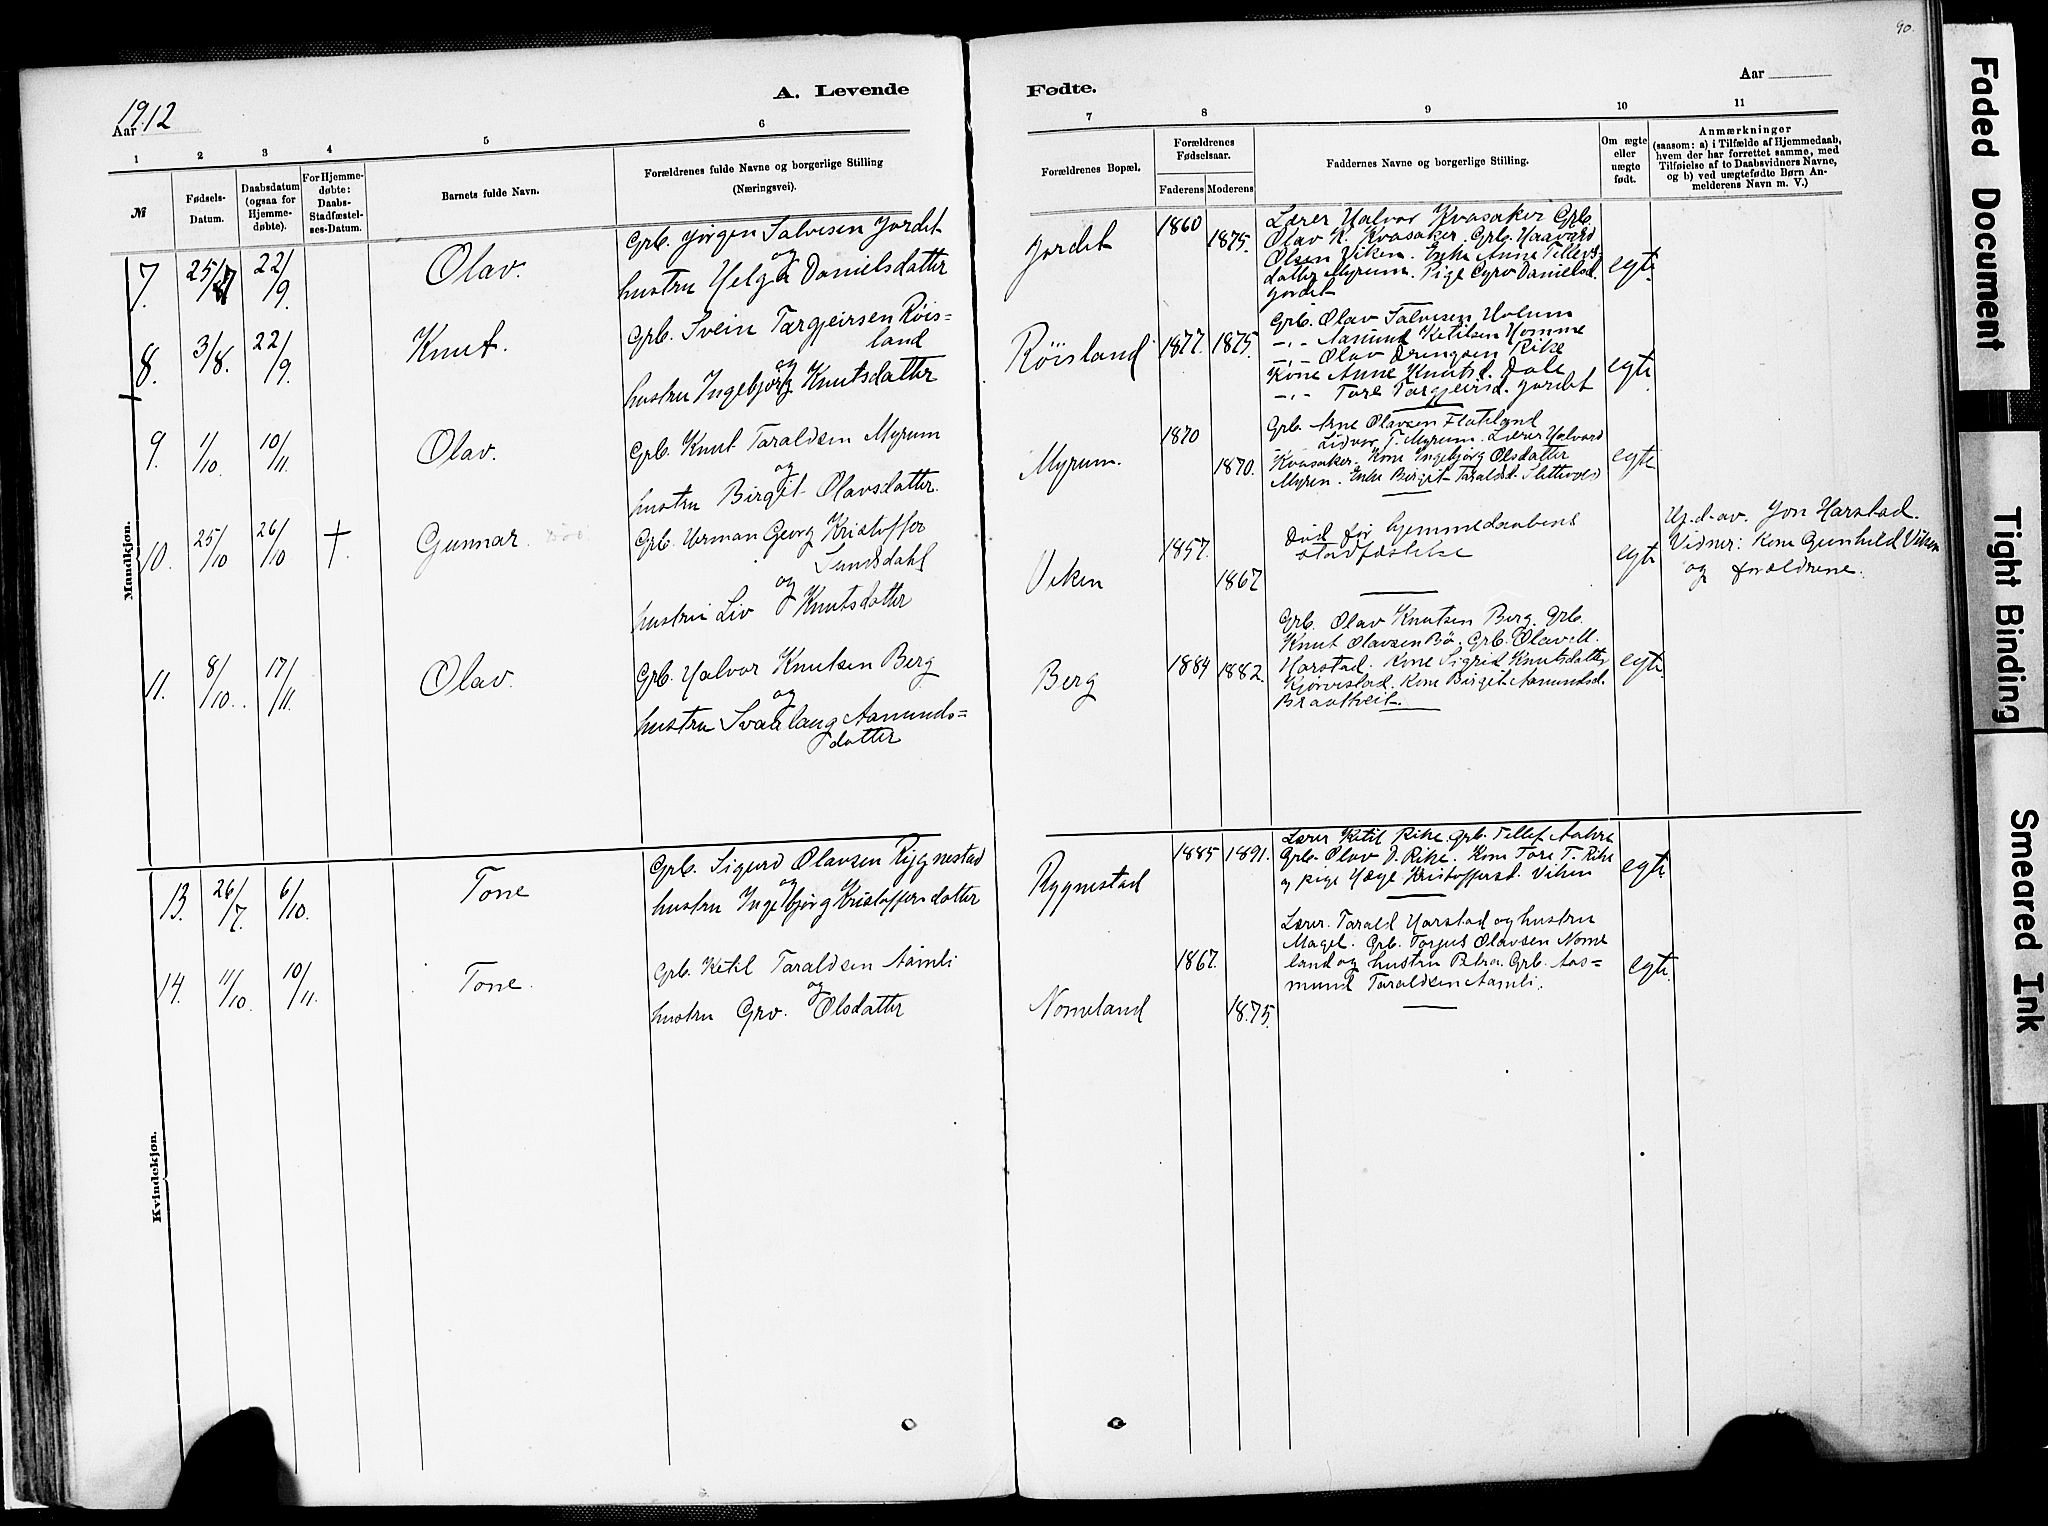 90.
1912
Aar
A. Levende
Fødte.
Aar
1 2 3 4 5 6 7 8 9 10 11
№
Fødsels-
Datum.
Daabsdatum
(ogsaa for
Hjemme-
døbte).
For Hjemme-
døbte:
Daabs-
Stadfæstel-
ses-Datum.
Barnets fulde Navn.
Forældrenes fulde Navne og borgerlige Stilling
(Næringsvei).
Forældrenes Bopæl.
Forældrenes
Fødselsaar.
Faderens Moderens
Faddernes Navne og borgerlige Stilling.
Om ægte
eller
uægte
født.
Anmærkninger
(saasom: a) i Tilfælde af Hjemmedaab,
hvem der har forrettet samme, med
Tilføielse af to Daabsvidners Navne,
og b) ved uægtefødte Børn An-
melderens Navn m. V.)
Mandkjøn.
7. 25/7 22/9 Olav.
Grb. Jørgen Salvesen Jordet
og
hustru Helga Danielsdatter
Jordet 1860 1875.
Lærer Halvor Kvasaker Grb.
Olav K. Kvasaker. Grb. Haavard
Olsen Viken. Enke Anne Tellevs
datter Myrum. Pige Gyro Danielsd.
Jordet
egte
8. 3/8. 22/9. Knut.
Grb. Svein Targjeirsen Røis-
land
og
hustru Ingebjørg Knutsdatter
Røisland 1877. 1875.
Grb. Olav Salvesen Holum
-"- Aasund Ketilsen Homme
-"- Olav Drengsen Rike
Kone Anne Knutsd. Dale
-"- Tore Targjeirsd. Jordet
egte
9. 1/10. 10/11. Olav.
Grb. Knut Taraldsen Myrum
og
hustru Birgit Olavsdatter.
Myrum. 1870 1870.
Grb. Arne Olavsen Flateland
Lidvor T. Myrum. Lærer Halvard
Kvasaker. Kone Ingebjørg Olsdatter
Myren. Enke Birgit Taraldsd. Slettevold
egte
10. 25/10 26/10 †. Gunnar.
Grb. Herman Georg Kristoffer
Sundsdahl
og
hustru Liv Knutsdatter
Viken 1857. 1867
Død før hjemmedaabens
stadfæstelse
egte
Hj.d. av. Jon Harstad.
Vidner: Kone Gunhild Viken
og forældrene.
11. 8/10. 17/11. Olav.
Grb. Halvor Knutsen Berg
og
hustru Svaalaug Aamunds=
datter
Berg 1884 1882.
Grb. Olav Knutsen Berg. Grb.
Knut Olavsen Bø. Grb. Olav M.
Harstad. Kone Sigrid Knutsdatter
Kjørvestad. Kone Birgit Aamundsd.
Brottveit.
egte
Kvindekjøn.
13. 26/7. 6/10. Tone
Grb. Sigurd Olavsen Rygnestad
og
hustru Ingebjørg Kristoffersdatter
Rygnestad 1885 1891.
Lærer Ketil Rike. Grb. Tellef Aakre
Grb. Olav D. Rike. Kone Tore T. Rike
og pige Hæge Kristoffersd. Viken
egte
14. 11/10. 10/11. Tone.
Grb. Ketil Taraldsen Aamli
og
hustru Gro. Olsdatter
Nomeland 1867. 1875.
Lærer. Tarald Harstad og hustru
Magel. Grb. Torjus Olavsen Nome
land og hustru Birgit. Grb. Aas=
mund Taraldsen Aamli.
egte.
Faded Document
Tight Binding
Smeared Ink